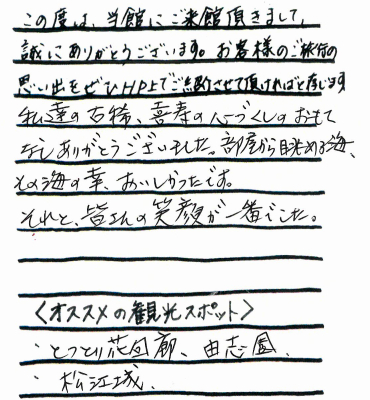 この度は、当館にご来館頂きまして、
誠にありがとうございます。お客様のご旅行の
思い出をぜひHP上でご紹介させて頂ければと存じます
私達の古稀、喜寿の心づくしのおもて
なしありがとうございました。部屋から眺める海、
その海の幸、おいしかったです。
それと、皆さんの笑顔が一番でした。
〈オススメの観光スポット〉
・とっとり花回廊、由志園、
・松江城、